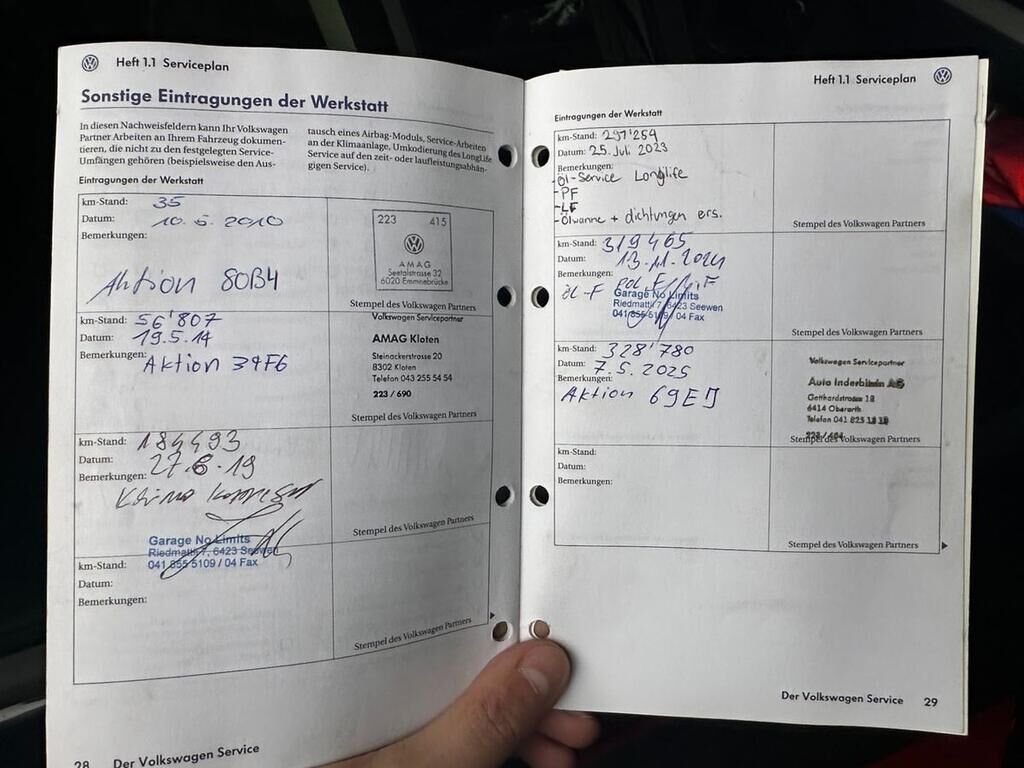 Heft 1.1 Serviceplan
Sonstige Eintragungen der Werkstatt
In diesen Nachweisfeldern kann Ihr Volkswagen
Partner Arbeiten an Ihrem Fahrzeug dokumen-
tieren, die nicht zu den festgelegten Service-
Umfängen gehören (beispielsweise den Aus-
tausch eines Airbag-Moduls, Service-Arbeiten
an der Klimaanlage, Umkodierung des LongLife
Service auf den zeit- oder laufleistungsabhän-
gigen Service).
Eintragungen der Werkstatt
km-Stand: 35
Datum: 10. 5. 2010
Bemerkungen:
Aktion 80B4
223 415
AMAG
Seetalstrasse 32
6020 Emmenbrücke
Stempel des Volkswagen Partners
km-Stand: 56'807
Datum: 19.5.14
Bemerkungen:
Aktion 34F6
Volkswagen Servicepartner
AMAG Kloten
Steinackerstrasse 20
8302 Kloten
Telefon 043 255 54 54
223 / 690
Stempel des Volkswagen Partners
km-Stand: 184493
Datum: 27.6.19
Bemerkungen:
Klima
Garage No Limits
Riedmattli 7, 6423 Seewen
041 855 5109 / 04 Fax
Stempel des Volkswagen Partners
km-Stand:
Datum:
Bemerkungen:
Stempel des Volkswagen Partners
28 Der Volkswagen Service
Heft 1.1 Serviceplan
Eintragungen der Werkstatt
km-Stand: 297'254
Datum: 25. Juli 2023
Bemerkungen:
-Öl-Service Longlife
-PF
-LF
-Ölwanne + dichtungen ers.
Stempel des Volkswagen Partners
km-Stand: 319465
Datum: 13.11.2024
Bemerkungen:
ÖL-F POL.F
Garage No Limits
Riedmattli 7, 6423 Seewen
041 855 5109 / 04 Fax
Stempel des Volkswagen Partners
km-Stand: 328'780
Datum: 7. 5. 2025
Bemerkungen:
Aktion 69EJ
Volkswagen Servicepartner
Auto Inderbitzin AG
Gotthardstrasse 18
6414 Oberarth
Telefon 041 825
Stempel des Volkswagen Partners
km-Stand:
Datum:
Bemerkungen:
Stempel des Volkswagen Partners
Der Volkswagen Service 29